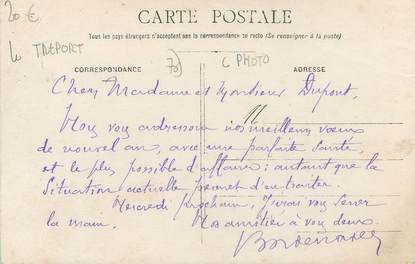 20 €
CARTE POSTALE
Tous les pays étrangers n'acceptent pas la correspondance au recto (Se renseigner à la poste)
le TREPORT
C PHOTO
CORRESPONDANCE
ADRESSE
Chers Madame et Monsieur Dupont,
Nous vous adressons nos meilleurs vœux
de nouvel an, avec une parfaite santé,
et le plus possible d'affaires; autant que la
Situation actuelle permet d'en traiter.
Mercredi prochain, J'irai vous serrer
la main. Nos amitiés à vous deux.